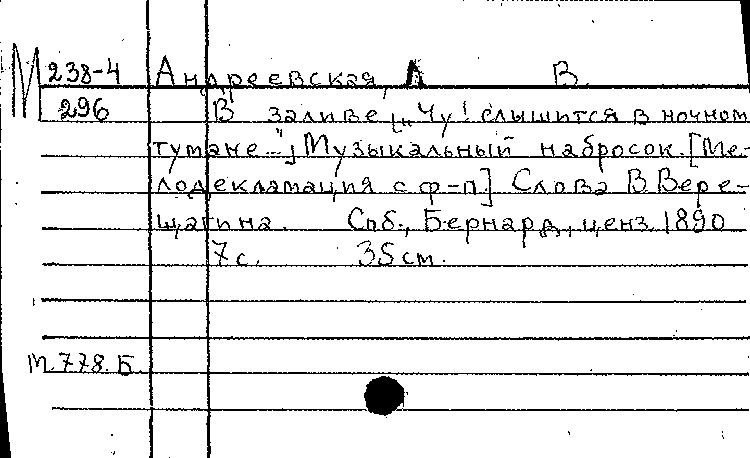 М 238-4 Андреевская, Л В.
296 В заливе [„Чу! слышится в ночном
тумане..."] Музыкальный набросок. [Ме-
лодекламация с ф-п.] Слова В. Вере-
щагина. Спб., Бернард, ценз. 1890
7 с. 35 см.
М. 778. Б.